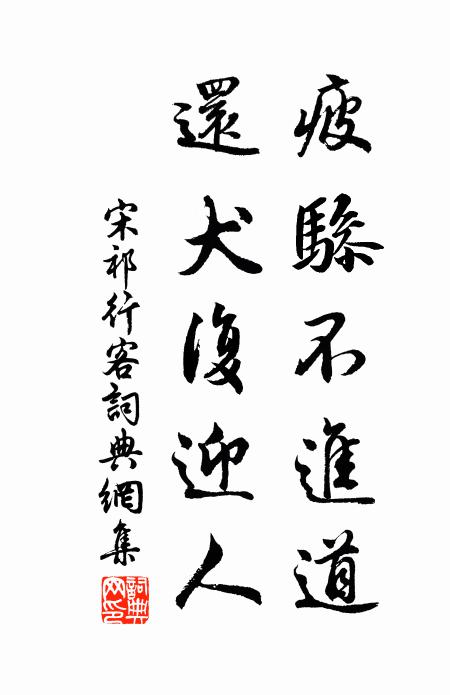 疲驂不進道
還犬復迎人
宋祁行客詞典網集
詞典網印